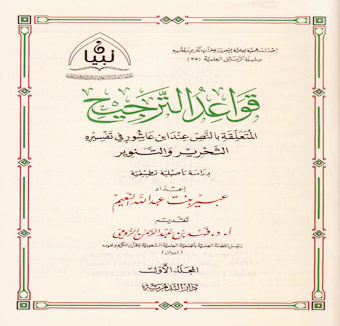 تبيان
إصدارات الجمعية العلمية السعودية للقرآن الكريم وعلومه
سلسلة الرسائل العلمية (٣٥)
قواعد الترجيح
المتعلقة بالنص عند ابن عاشور في تفسيره
التحرير والتنوير
دراسة تأصيلية تطبيقية
إعداد
عبير بنت عبد الله النعيم
تقديم
أ. د. فهد بن عبد الرحمن الرومي
رئيس اللجنة العلمية بالجمعية العلمية السعودية للقرآن الكريم وعلومه
(تبيان)
المجلد الأول
دار التدمرية